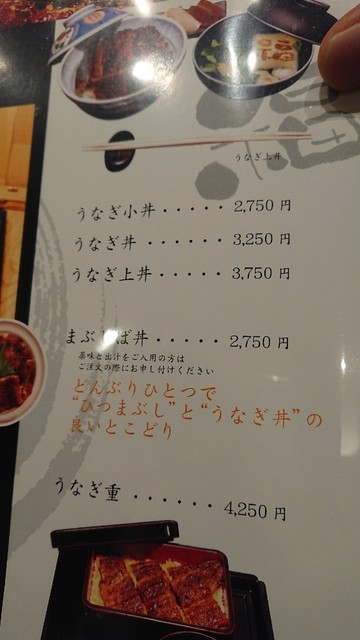 うなぎ上丼
うなぎ小丼・・・・・2,750 円
うなぎ丼 ・・・・・・3,250 円
うなぎ上丼・・・・・3,750 円
丼・・・・・2,750 円
薬味と出汁をご入用の方は
ご注文の際にお申し付けください
どんぶりひとつで
“ひつまぶし”と“うなぎ丼”の
良いとこどり
うなぎ重 ・・・・・・4,250 円